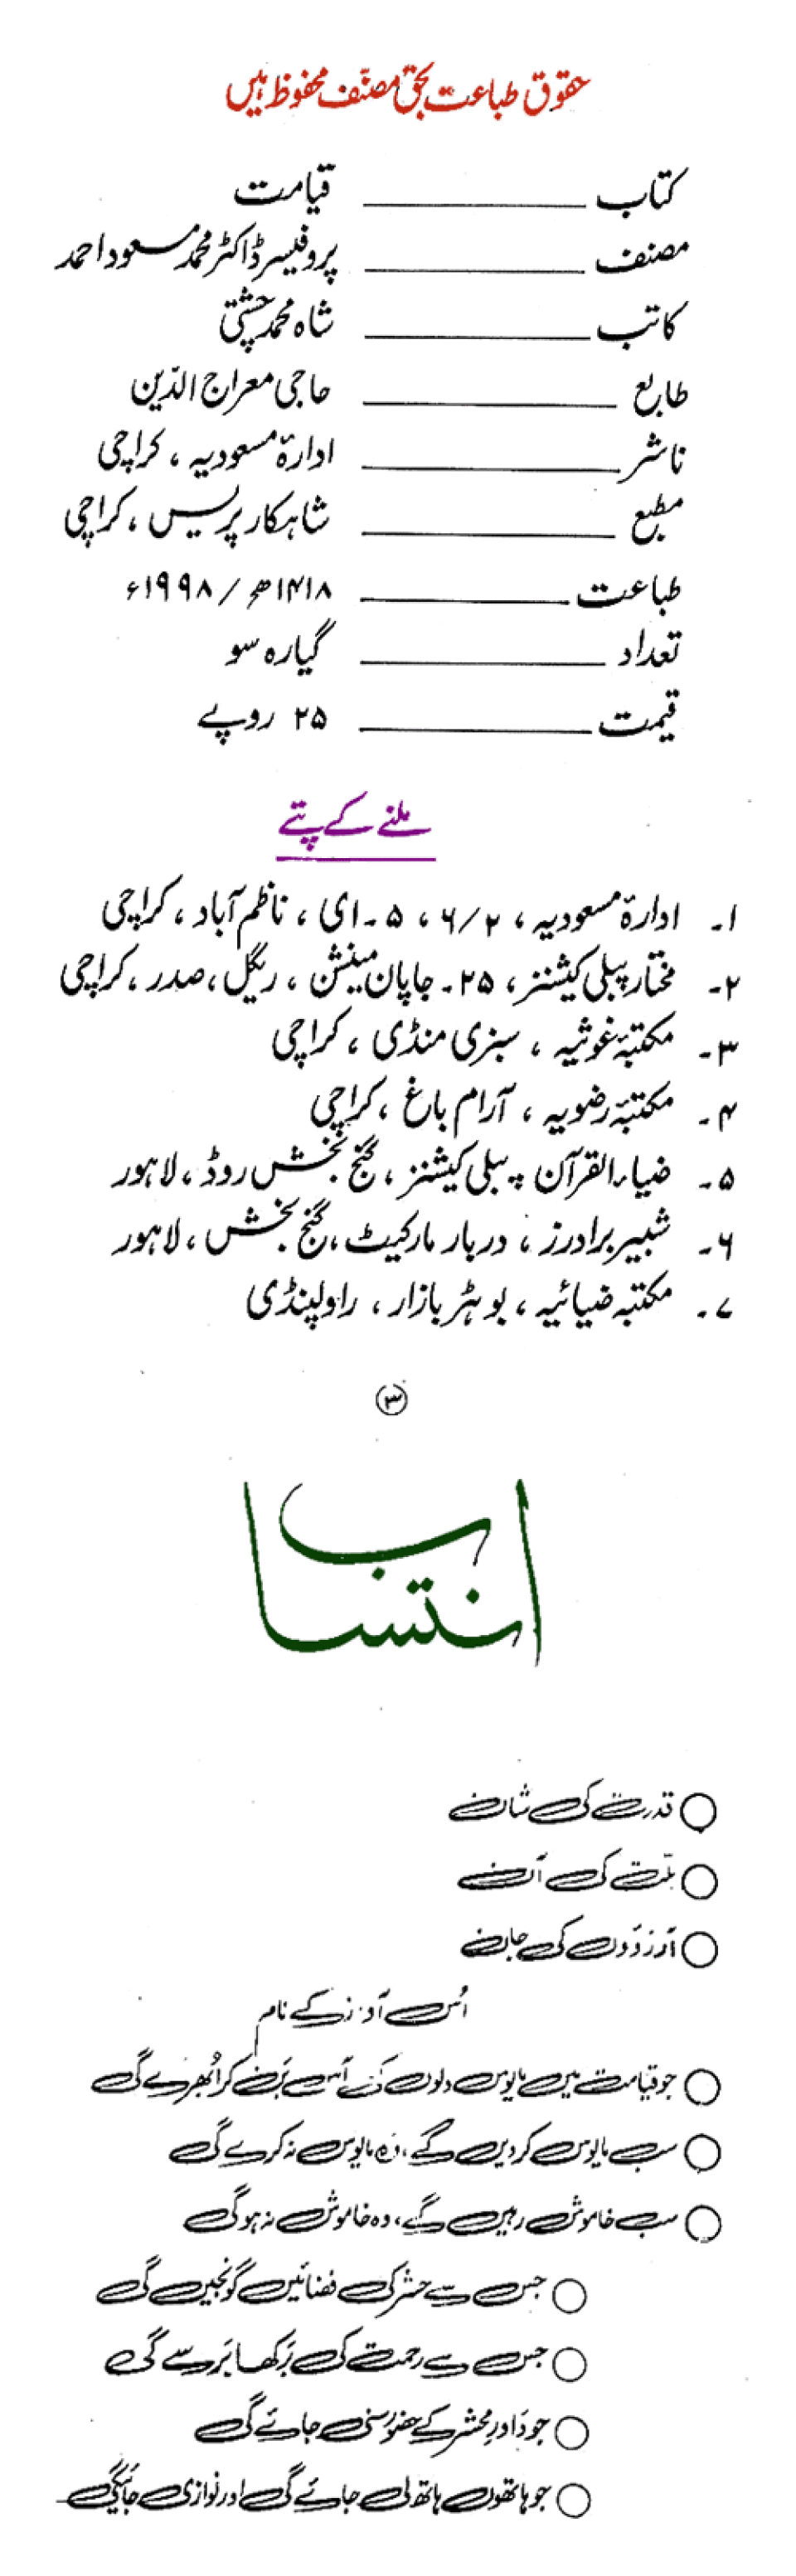 حقوق طباعت بحق مصنّف محفوظ ہیں
کتاب ــــــــ قیامت
مصنف ــــــــ پروفیسر ڈاکٹر محمد مسعود احمد
کاتب ــــــــ شاہ محمد چشتی
طابع ــــــــ حاجی معراج الدّین
ناشر ــــــــ ادارۂ مسعودیہ ، کراچی
مطبع ــــــــ شاہکار پریس ، کراچی
طباعت ــــــــ ۱۴۱۸ھ / ۱۹۹۸ء
تعداد ــــــــ گیارہ سو
قیمت ــــــــ ۲۵ روپے
ملنے کے پتے
۱۔ ادارۂ مسعودیہ ، ۶/۲ ، ۵۔ای ، ناظم آباد ، کراچی
۲۔ مختار پبلی کیشنز ، ۲۵۔ جاپان مینشن ، ریگل ، صدر ، کراچی
۳۔ مکتبۂ غوثیہ ، سبزی منڈی ، کراچی
۴۔ مکتبۂ رضویہ ، آرام باغ ، کراچی
۵۔ ضیاء القرآن پبلی کیشنز ، گنج بخش روڈ ، لاہور
۶۔ شبیر برادرز ، دربار مارکیٹ ، گنج بخش ، لاہور
۷۔ مکتبہ ضیائیہ ، بوہڑ بازار ، راولپنڈی
۳
انتساب
قدرت کی شان
ملّت کی آن
آرزوؤں کی جان
اُس آواز کے نام
جو قیامت میں مایوس دلوں کی آس بَن کر اُبھرے گی
سب مایوس کردیں گے ، وہ مایوس نہ کرے گی
سب خاموش رہیں گے ، وہ خاموش نہ ہوگی
جس سے حشر کی فضائیں گونجیں گی
جس سے رحمت کی بَرکھا بَرسے گی
جو دَاورِ محشر کے حضور سنی جائے گی
جو ہاتھوں ہاتھ لی جائے گی اور نوازی جائیگی